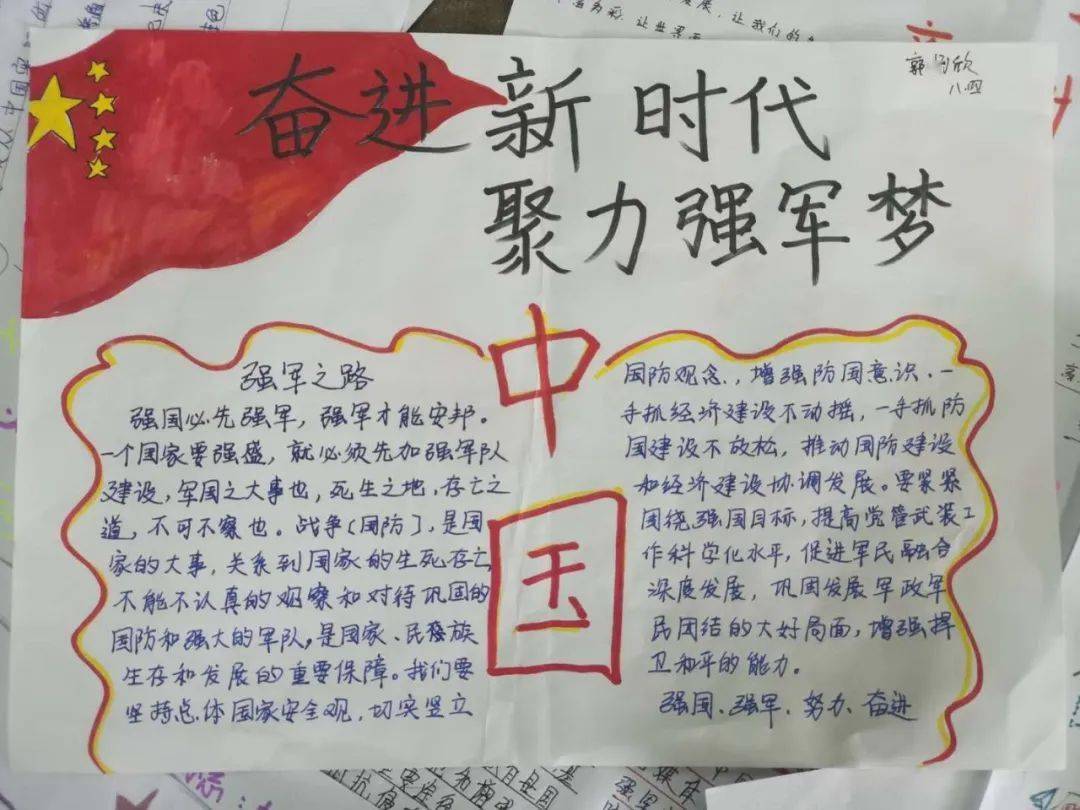 奋进新时代
聚力强军梦
八四
中国
强军之路
强国必先强军，强军才能安邦。
一个国家要强盛，就必须先加强军队
建设，军国之大事也，死生之地，存亡之
道，不可不察也。战争（国防），是国
家的大事，关系到国家的生死存亡，
不能不认真的观察和对待巩固的
国防和强大的军队。是国家、民族族
生存和发展的重要保障。我们要
坚持总体国家安全观，切实竖立
国防观念，增强防国意识，一
手抓经济建设不动摇，一手抓防
国建设不放松，推动国防建设
和经济建设协调发展。要紧紧
围绕强国目标，提高党管武装工
作科学化水平，促进军民融合
深度发展，巩固发展军政军
民团结的大好局面，增强捍
卫和平的能力。
强国、强军、努力、奋进